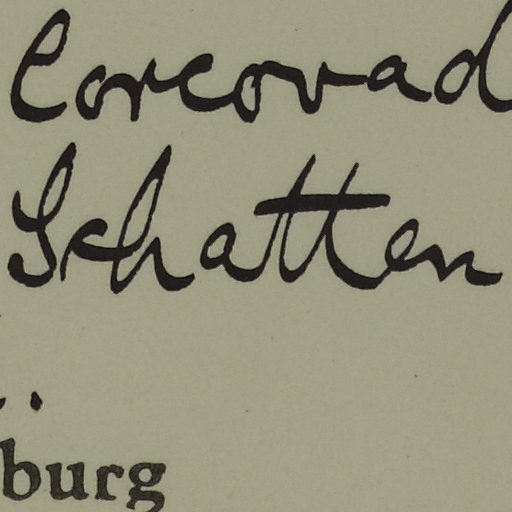 Corcovad
Schatten
burg